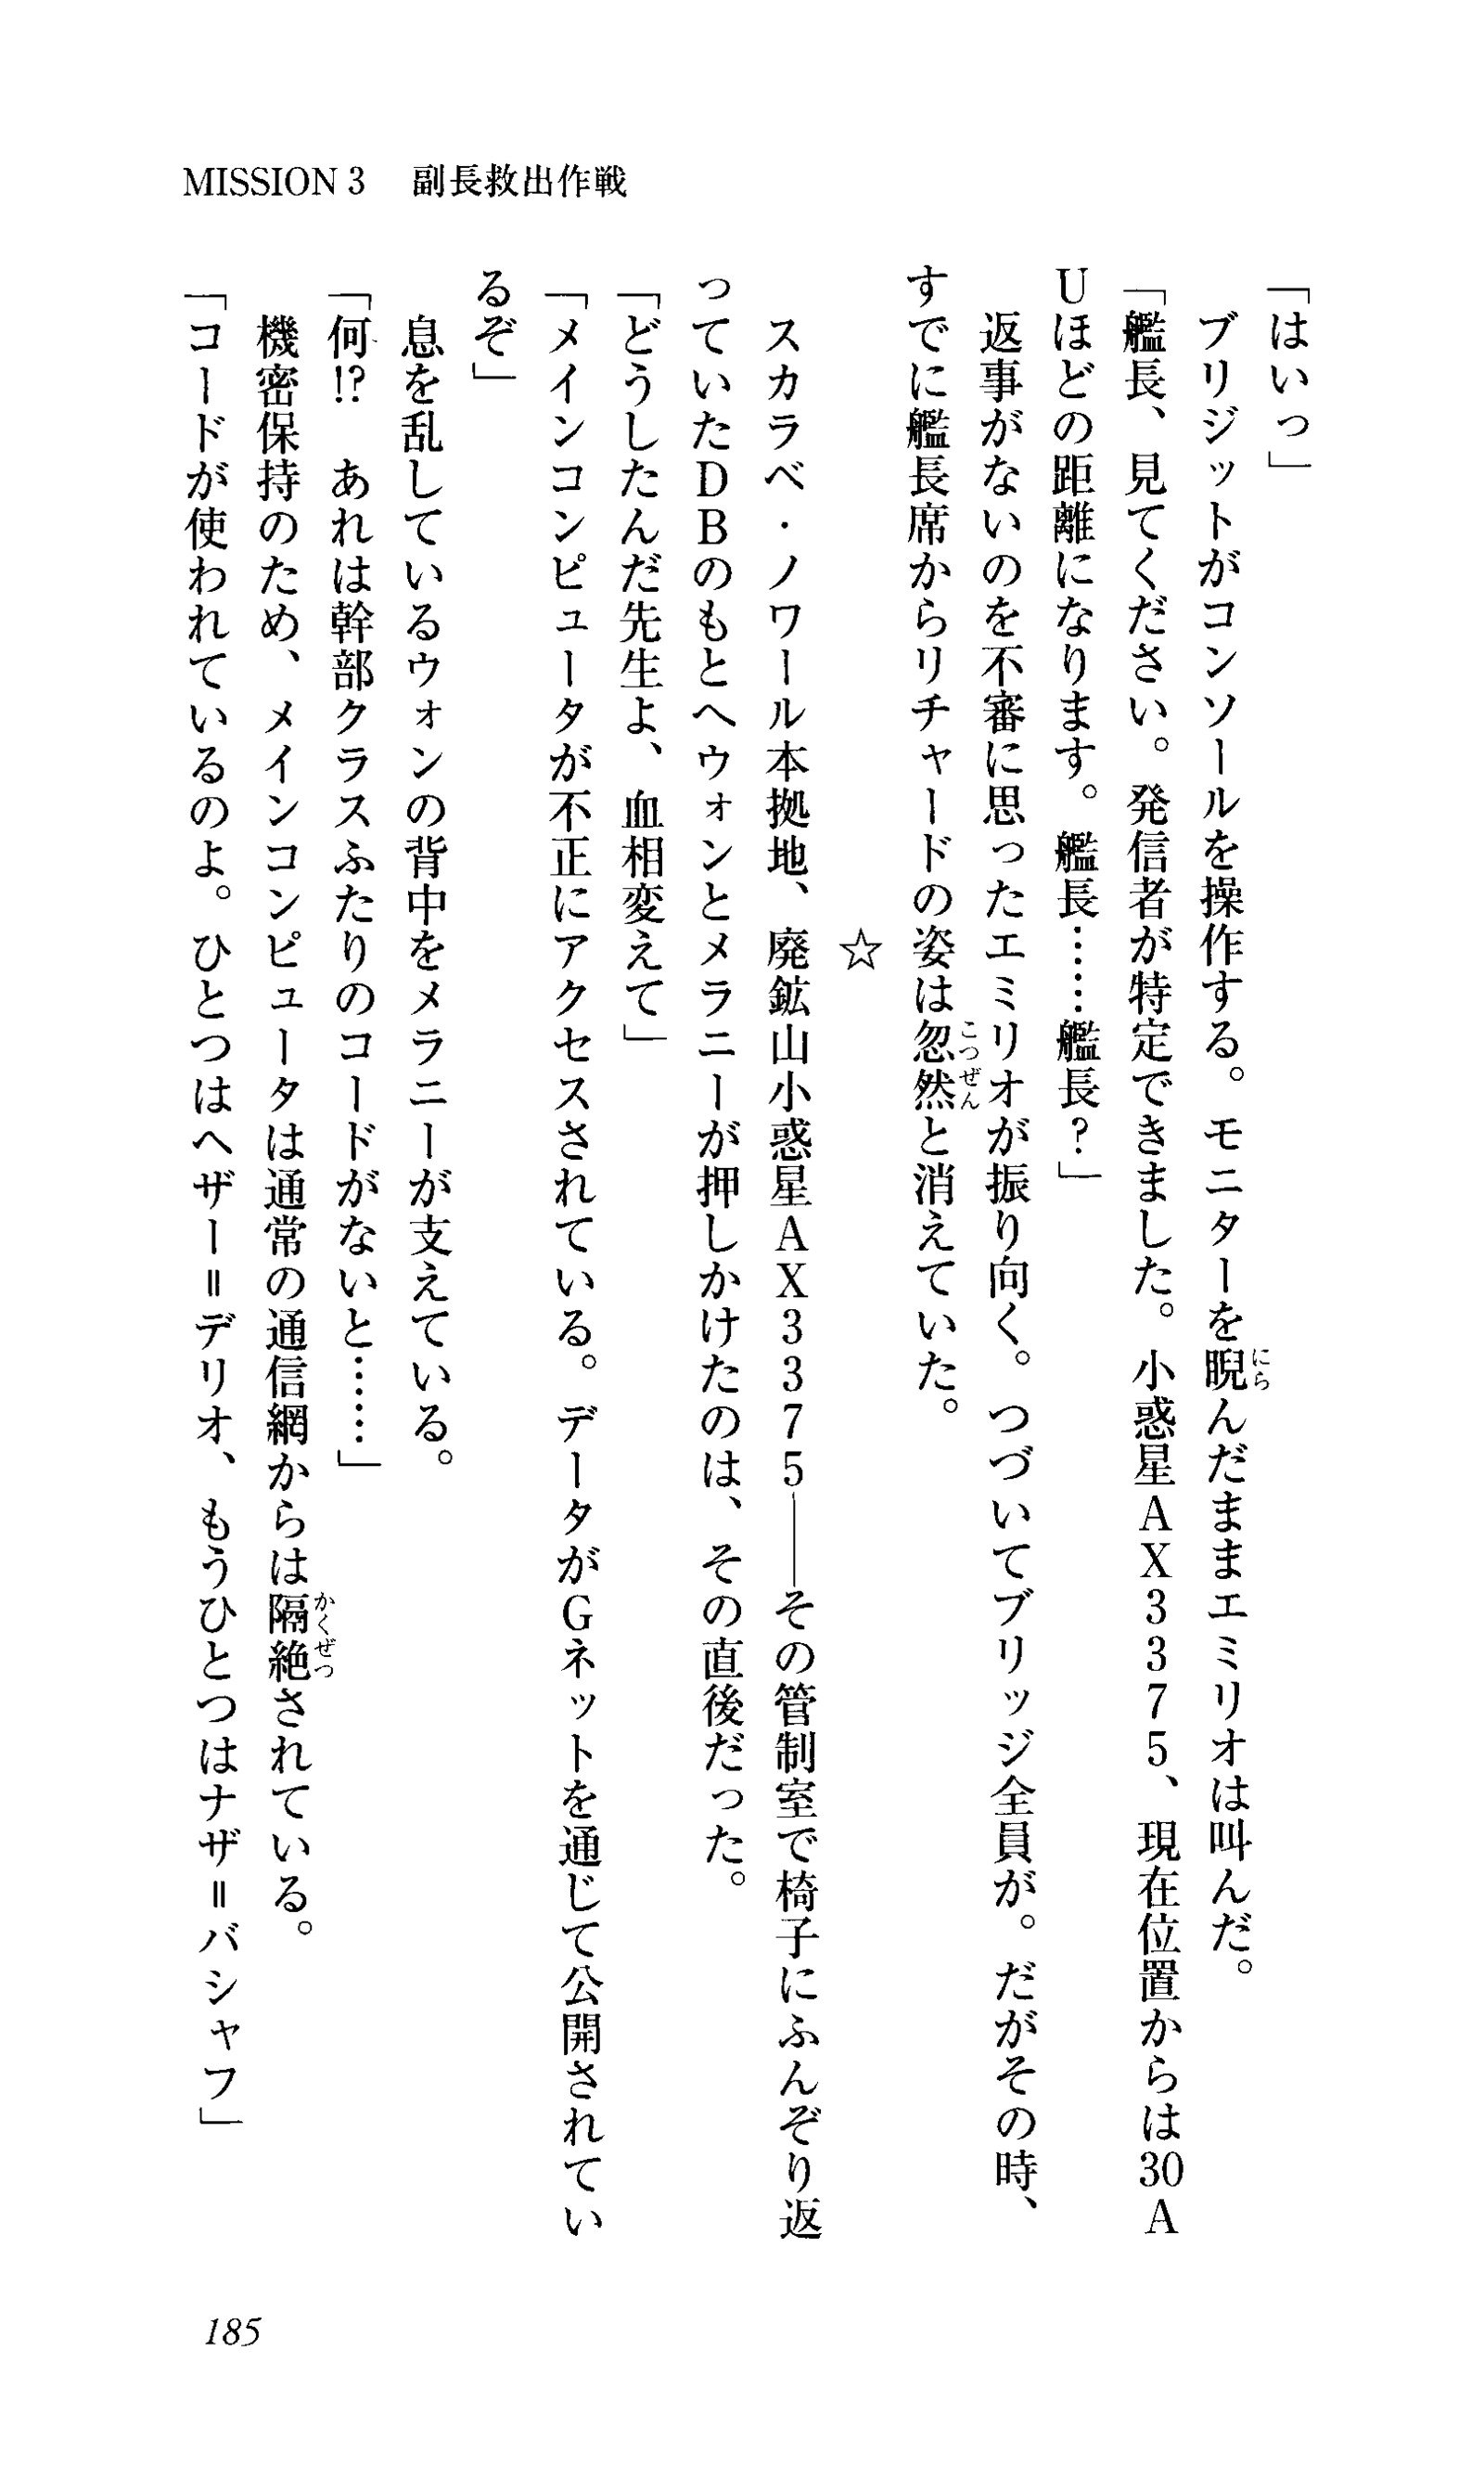 MISSION 3　副長救出作戦
「はいっ」
　ブリジットがコンソールを操作する。モニターを睨んだままエミリオは叫んだ。
「艦長、見てください。発信者が特定できました。小惑星AX3375、現在位置からは30A
Uほどの距離になります。艦長……艦長？」
　返事がないのを不審に思ったエミリオが振り向く。つづいてブリッジ全員が。だがその時、
すでに艦長席からリチャードの姿は忽然と消えていた。
☆
　スカラベ・ノワール本拠地、廃鉱山小惑星AX3375――その管制室で椅子にふんぞり返
っていたDBのもとへウォンとメラニーが押しかけたのは、その直後だった。
「どうしたんだ先生よ、血相変えて」
「メインコンピュータが不正にアクセスされている。データがGネットを通じて公開されてい
るぞ」
　息を乱しているウォンの背中をメラニーが支えている。
「何!?　あれは幹部クラスふたりのコードがないと……」
　機密保持のため、メインコンピュータは通常の通信網からは隔絶されている。
「コードが使われているのよ。ひとつはヘザー＝デリオ、もうひとつはナザ＝バシャフ」
にら
こつぜん
かくぜつ
185